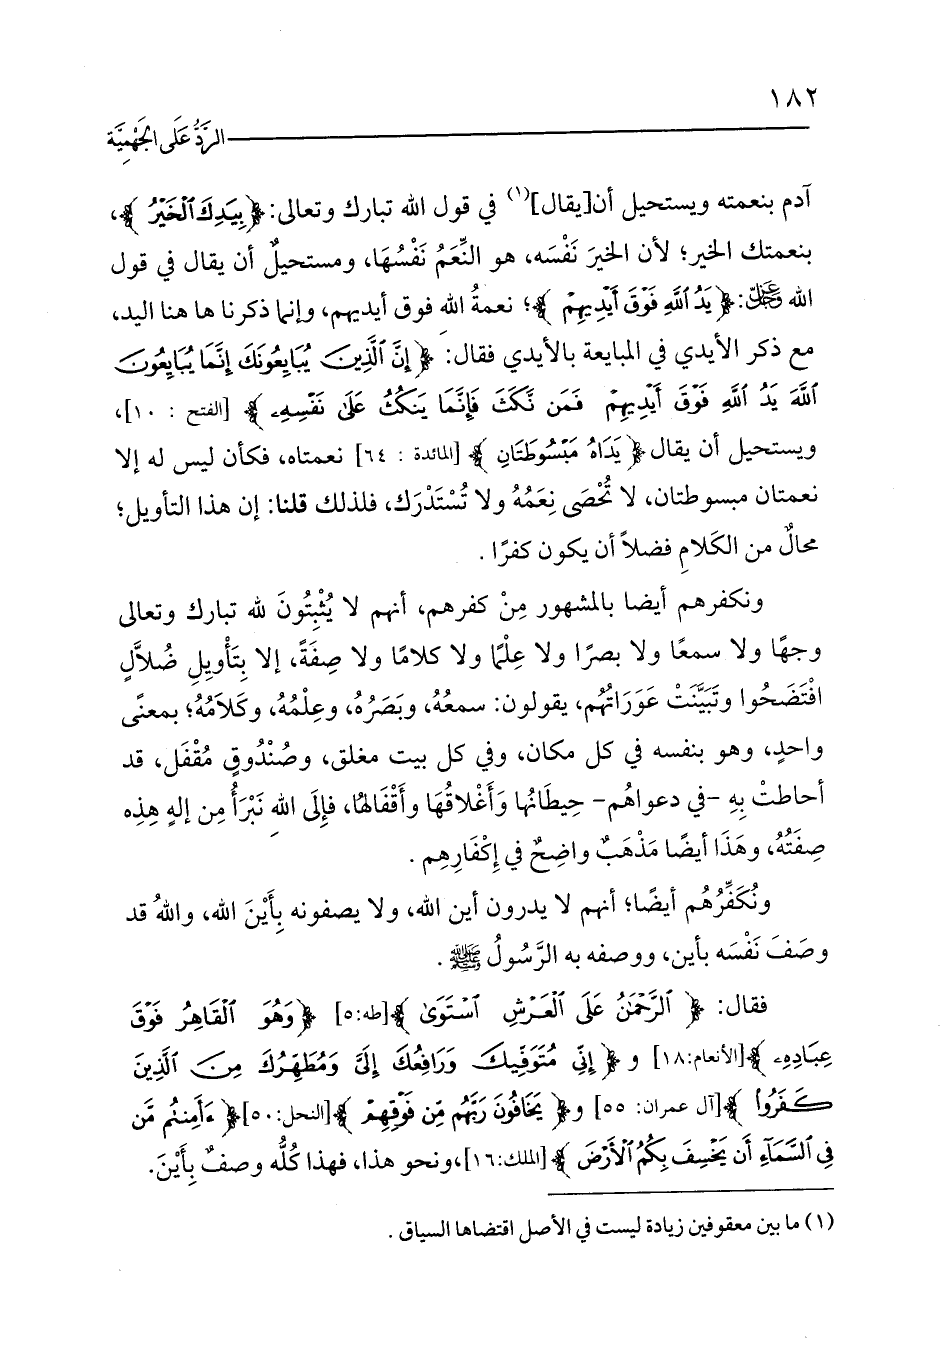 ١٨٢
الرَّدُّ عَلَى الجَهْمِيَّة
آدم بنعمته ويستحيل أن[يقال](١) في قول الله تبارك وتعالى: ﴿بِيَدِكَ ٱلْخَيْرُ ﴾،
بنعمتك الخير؛ لأن الخيرَ نَفْسَه، هو النِّعَمُ نَفْسُهَا، ومستحيلٌ أن يقال في قول
الله ﷿: ﴿ يَدُ ٱللَّهِ فَوْقَ أَيْدِيهِمْ ﴾؛ نعمةُ الله فوق أيديهم، وإنما ذكرنا ها هنا اليد،
مع ذكر الأيدي في المبايعة بالأيدي فقال: ﴿ إِنَّ ٱلَّذِينَ يُبَايِعُونَكَ إِنَّمَا يُبَايِعُونَ
ٱللَّهَ يَدُ ٱللَّهِ فَوْقَ أَيْدِيهِمْ فَمَن نَّكَثَ فَإِنَّمَا يَنكُثُ عَلَىٰ نَفْسِهِۦ ﴾ [الفتح : ١٠]،
ويستحيل أن يقال ﴿ يَدَاهُ مَبْسُوطَتَانِ ﴾ [المائدة : ٦٤] نعمتاه، فكأن ليس له إلا
نعمتان مبسوطتان، لا تُحْصَى نِعَمُهُ ولا تُسْتَدْرَك، فلذلك قلنا: إن هذا التأويل؛
محالٌ من الكَلامِ فضلاً أن يكون كفرًا .
ونكفرهم أيضا بالمشهور مِنْ كفرهم، أنهم لا يُثْبِتُونَ لله تبارك وتعالى
وجهًا ولا سمعًا ولا بصرًا ولا عِلْمًا ولا كلامًا ولا صِفَةً، إلا بِتَأْوِيلِ ضُلاَّلٍ
افْتَضَحُوا وتَبَيَّنَتْ عَوَرَاتُهُم، يقولون: سمعُهُ، وبَصَرُهُ، وعِلْمُهُ، وكَلاَمُهُ؛ بمعنًى
واحدٍ، وهو بنفسه في كل مكان، وفي كل بيت مغلق، وصُنْدُوقٍ مُقْفَل، قد
أحاطتْ بِهِ -في دعواهُم- حِيطَانُها وَأَغْلاقُهَا وأَقْفَالهُا، فإِلَى الله نَبْرَأُ مِن إلهٍ هِذِه
صِفَتُهُ، وهَذَا أيضًا مَذْهَبٌ واضِحٌ في إِكْفَارِهِم .
ونُكَفِّرُهُم أيضًا؛ أنهم لا يدرون أين الله، ولا يصفونه بِأَيْنَ الله، واللهُ قد
وصَفَ نَفْسَه بأين، ووصفه به الرَّسُولُ ﷺ .
فقال: ﴿ ٱلرَّحْمَٰنُ عَلَى ٱلْعَرْشِ ٱسْتَوَىٰ ﴾[طه:٥] ﴿وَهُوَ ٱلْقَاهِرُ فَوْقَ
عِبَادِهِۦ ﴾[الأنعام:١٨] و ﴿ إِنِّي مُتَوَفِّيكَ وَرَافِعُكَ إِلَيَّ وَمُطَهِّرُكَ مِنَ ٱلَّذِينَ
كَفَرُواْ ﴾[آل عمران: ٥٥] و﴿ يَخَافُونَ رَبَّهُم مِّن فَوْقِهِمْ ﴾[النحل:٥٠]﴿ ءَأَمِنتُم مَّن
فِي ٱلسَّمَآءِ أَن يَخْسِفَ بِكُمُ ٱلْأَرْضَ ﴾[الملك:١٦]،ونحو هذا، فهذا كُلُّه وصفٌ بِأَيْنَ.
(١) ما بين معقوفين زيادة ليست في الأصل اقتضاها السياق .